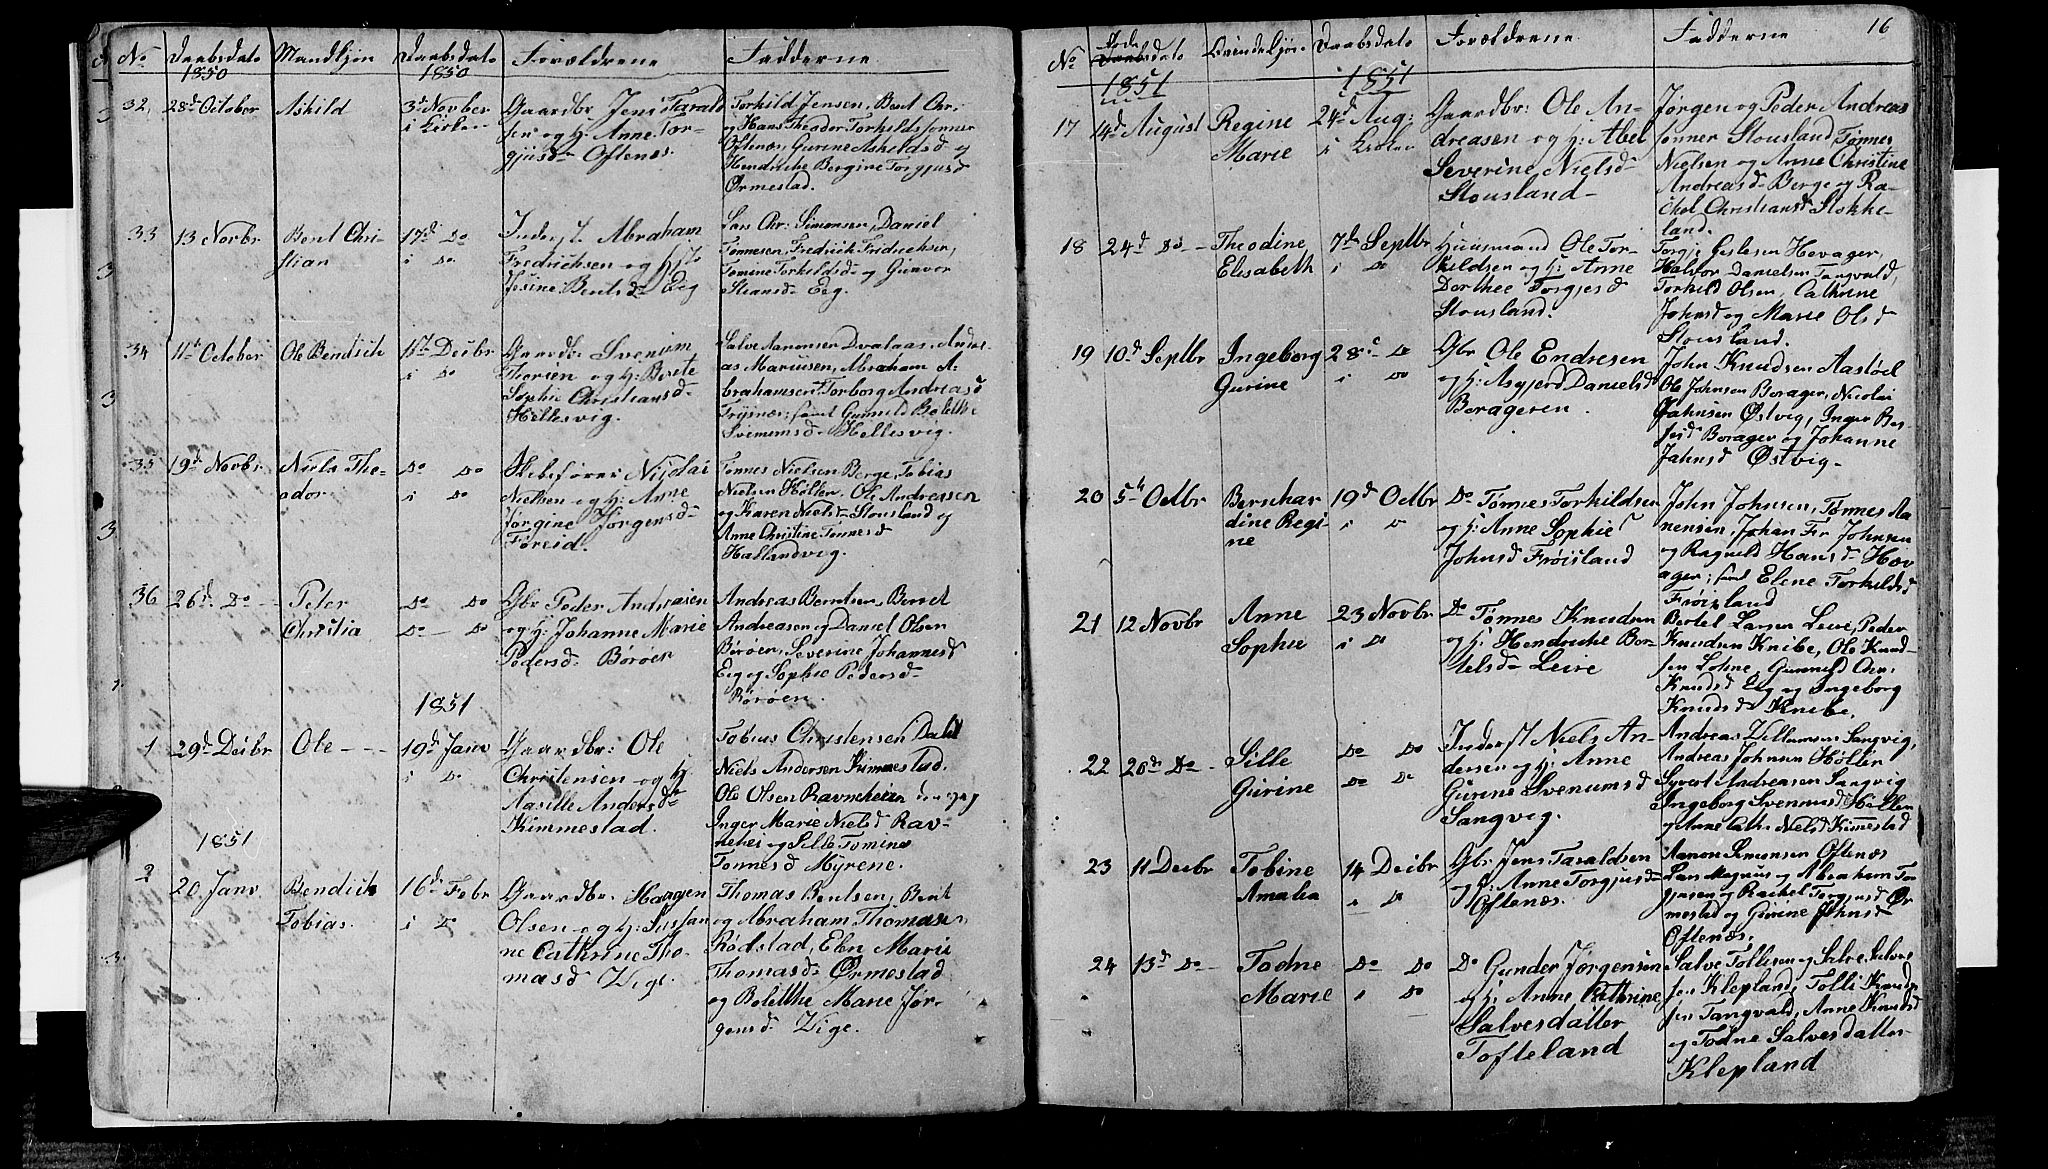 No Daabsdato Mandkjøn Daabsdato Forældrene Fadderne
1850 1850
32, 28d October Askild 3d Novber i Kirken
Gaardbr Jens Tarald-
sen og H: Anne Tor-
gjusd- Oftenæs.
Torkild Jensen, Bent Chr:
og Hans Theodor Torkildssønner
Oftenæs, Gurine Askildsd og
Hendrikke Bergine Torgjusd
Ørmestad.
33 13 Novbr Bent Chri-
stian
17d Do
i Do
Inderst Abraham
Fredrichsen og H:
Jesine Bentsd- Eeg
Lars Chr: Simonsen, Daniel
Tønnesen, Fredrich Fridrichsen,
Tomine Torkildsd- og Gunvor
Stiansd- Eeg.
34 11t October Ole Bendich
Decbr
i Do
Gaardbr Svenum
Thorsen og H: Berte
Sophie Christiansd-
Hellesvig.
Salve Aanonsen Dvalaas, Andre-
as Mariusen, Abraham A-
brahamsen, Torborg Andreasd
Trysnæs; samt Gunnild Bolethe
Svenumsd- Hellesvig.
35 19d Novbr Niels Theo-
ador
Do Do
i Do
Skibsfører Nicolai
Nielsen og H: Anne
Jørgine Jørgensd-
Føreid.
Tønnes Nielsen Berge, Tobias
Nielsen Høller, Ole Andreasen
og Karen Nielsd- Stousland og
Anne Christine Tønnesd
Hallandvig.
36 26d. Do Peter
Christia
Do Do
Do Do
Gbr Peder Andreasen
og H: Johanne Marie
Pedersd- Børøen
Andreas Berntsen, Berret
Andreasen og Daniel Olsen
Børøen, Severine Johannesd
Eeg og Sophie Pedersd-
Børøen.
1851
1 29d Decbr Ole
19d Janv
i Do
Gaardbr: Ole
Christensen og H
Aasille Andersd-
Kimmestad.
Tobias Christensen Dahl
Niels Andersen Kimmestad.
Ole Olsen Ravnheien
Inger Marie Nielsd Rav-
nehei og Sille Tomine
Tønnesd Myrene.
1851
2 20 Janv Bendich
Tobias.
16d Febr
i Do
Gaardbr. Haagen
Olsen og H: Sussan-
ne Cathrine Tho-
masd Vige.
Thomas Bentsen, Bent
og Abraham Thomasen
Rødstad, Elen Marie
Thomasd- Ørmestad
og Bolethe Marie Jør-
gensd Vige.
16
No Føde dato Qvindekjøn Daabsdato Forældrene Fadderne
1851 1851
17 14d August Regine
Marie
24d Aug:
i Kirken
Gaardbr: Ole An-
dreasen og H: Abel
Severine Nielsd-
Stousland-
Jørgen og Peder Andreas
sønner Stousland, Tønnes
Nielsen og Anne Christine
Andreasd- Berge og Ra-
chel Christiansd Stokke-
land.
18 24d Do - Theodine
Elisabeth
7de Septbr
i Do
Huusmand Ole Tor-
kildsen og H: Anne
Dorthee Torgjesd
Stousland.
Torgj: Gislesen Hovager,
Halvor Danielsen Tangvald,
Torkild Olsen, Cathrine
Johnsd og Marie Olsd
Stousland.
19 10d Septbr Ingeborg
Gurine
28d Do
i Do
Gbr Ole Endresen
og H: Asgjerd Danielsd
Borageren.
John Knudsen Aastøel
Ole Johnsen Borager, Nicolai
Jahnsen Østvig, Inger Ber-
send Borager og Johanne
Jahnsd Østvig-
20 5th Octbr Bernhar
dine Regi-
ne
19d Octbr
i Do
Do Tønnes Torkildsen
og H: Anne Sophie
Johnsd Frøisland
John Johnsen, Tønnes Aa-
nensen, Johan Fr Johnsen
og Ragnild Hansd- Hov-
ager; samt Elene Torkildsd
Frøisland
21 12 Novbr Anne
Sophie
23 Novbr
i Do
Do Tønnes Knudsen
og H: Hendrikke Ber-
telsd- Leire
Bertel Larsen Leire, Peder
Knudsen Knibe, Ole Knud-
sen Lohne, Gunnild Chr:
Knudsd Eeg og Ingeborg
Knudsd Knibe.
22 20de Do - Sille
Gurine
Do Do
Do Do
Inderst Niels An-
dersen og H: Anne
Gurine Svenumsd
Sangvig.
Andreas Villumsen Sangvig,
Andreas Johnsen Høller
Syvert Andreasen Sangvig
Ingeborg Svenumsd Høllen
og Anne Cath: Nielsd Kimestad
23 11 Decbr Tobine
Amalia
14 Decbr
i Do
Gbr Jens Taraldsen
og H: Anne Torgjusd-
Oftenæs.
Aanon Simonsen Oftenæs
Lars Magnus og Abraham Tor
gjusen og Rachel Torgjusd Ør
mestad og Gurine Johnsd
Oftenæs.
24 13d Do - Todne
Marie
Do Do
i Do
Do Gunder Jørgensen
og H: Anne Cathrine
Salvesdatter
Tofteland
Salve Tollisen og Salve Salve-
sen Klepland, Tolli Knud-
sen Tangvald, Anne Knudsd
og Todne Salvesdatter
Klepland